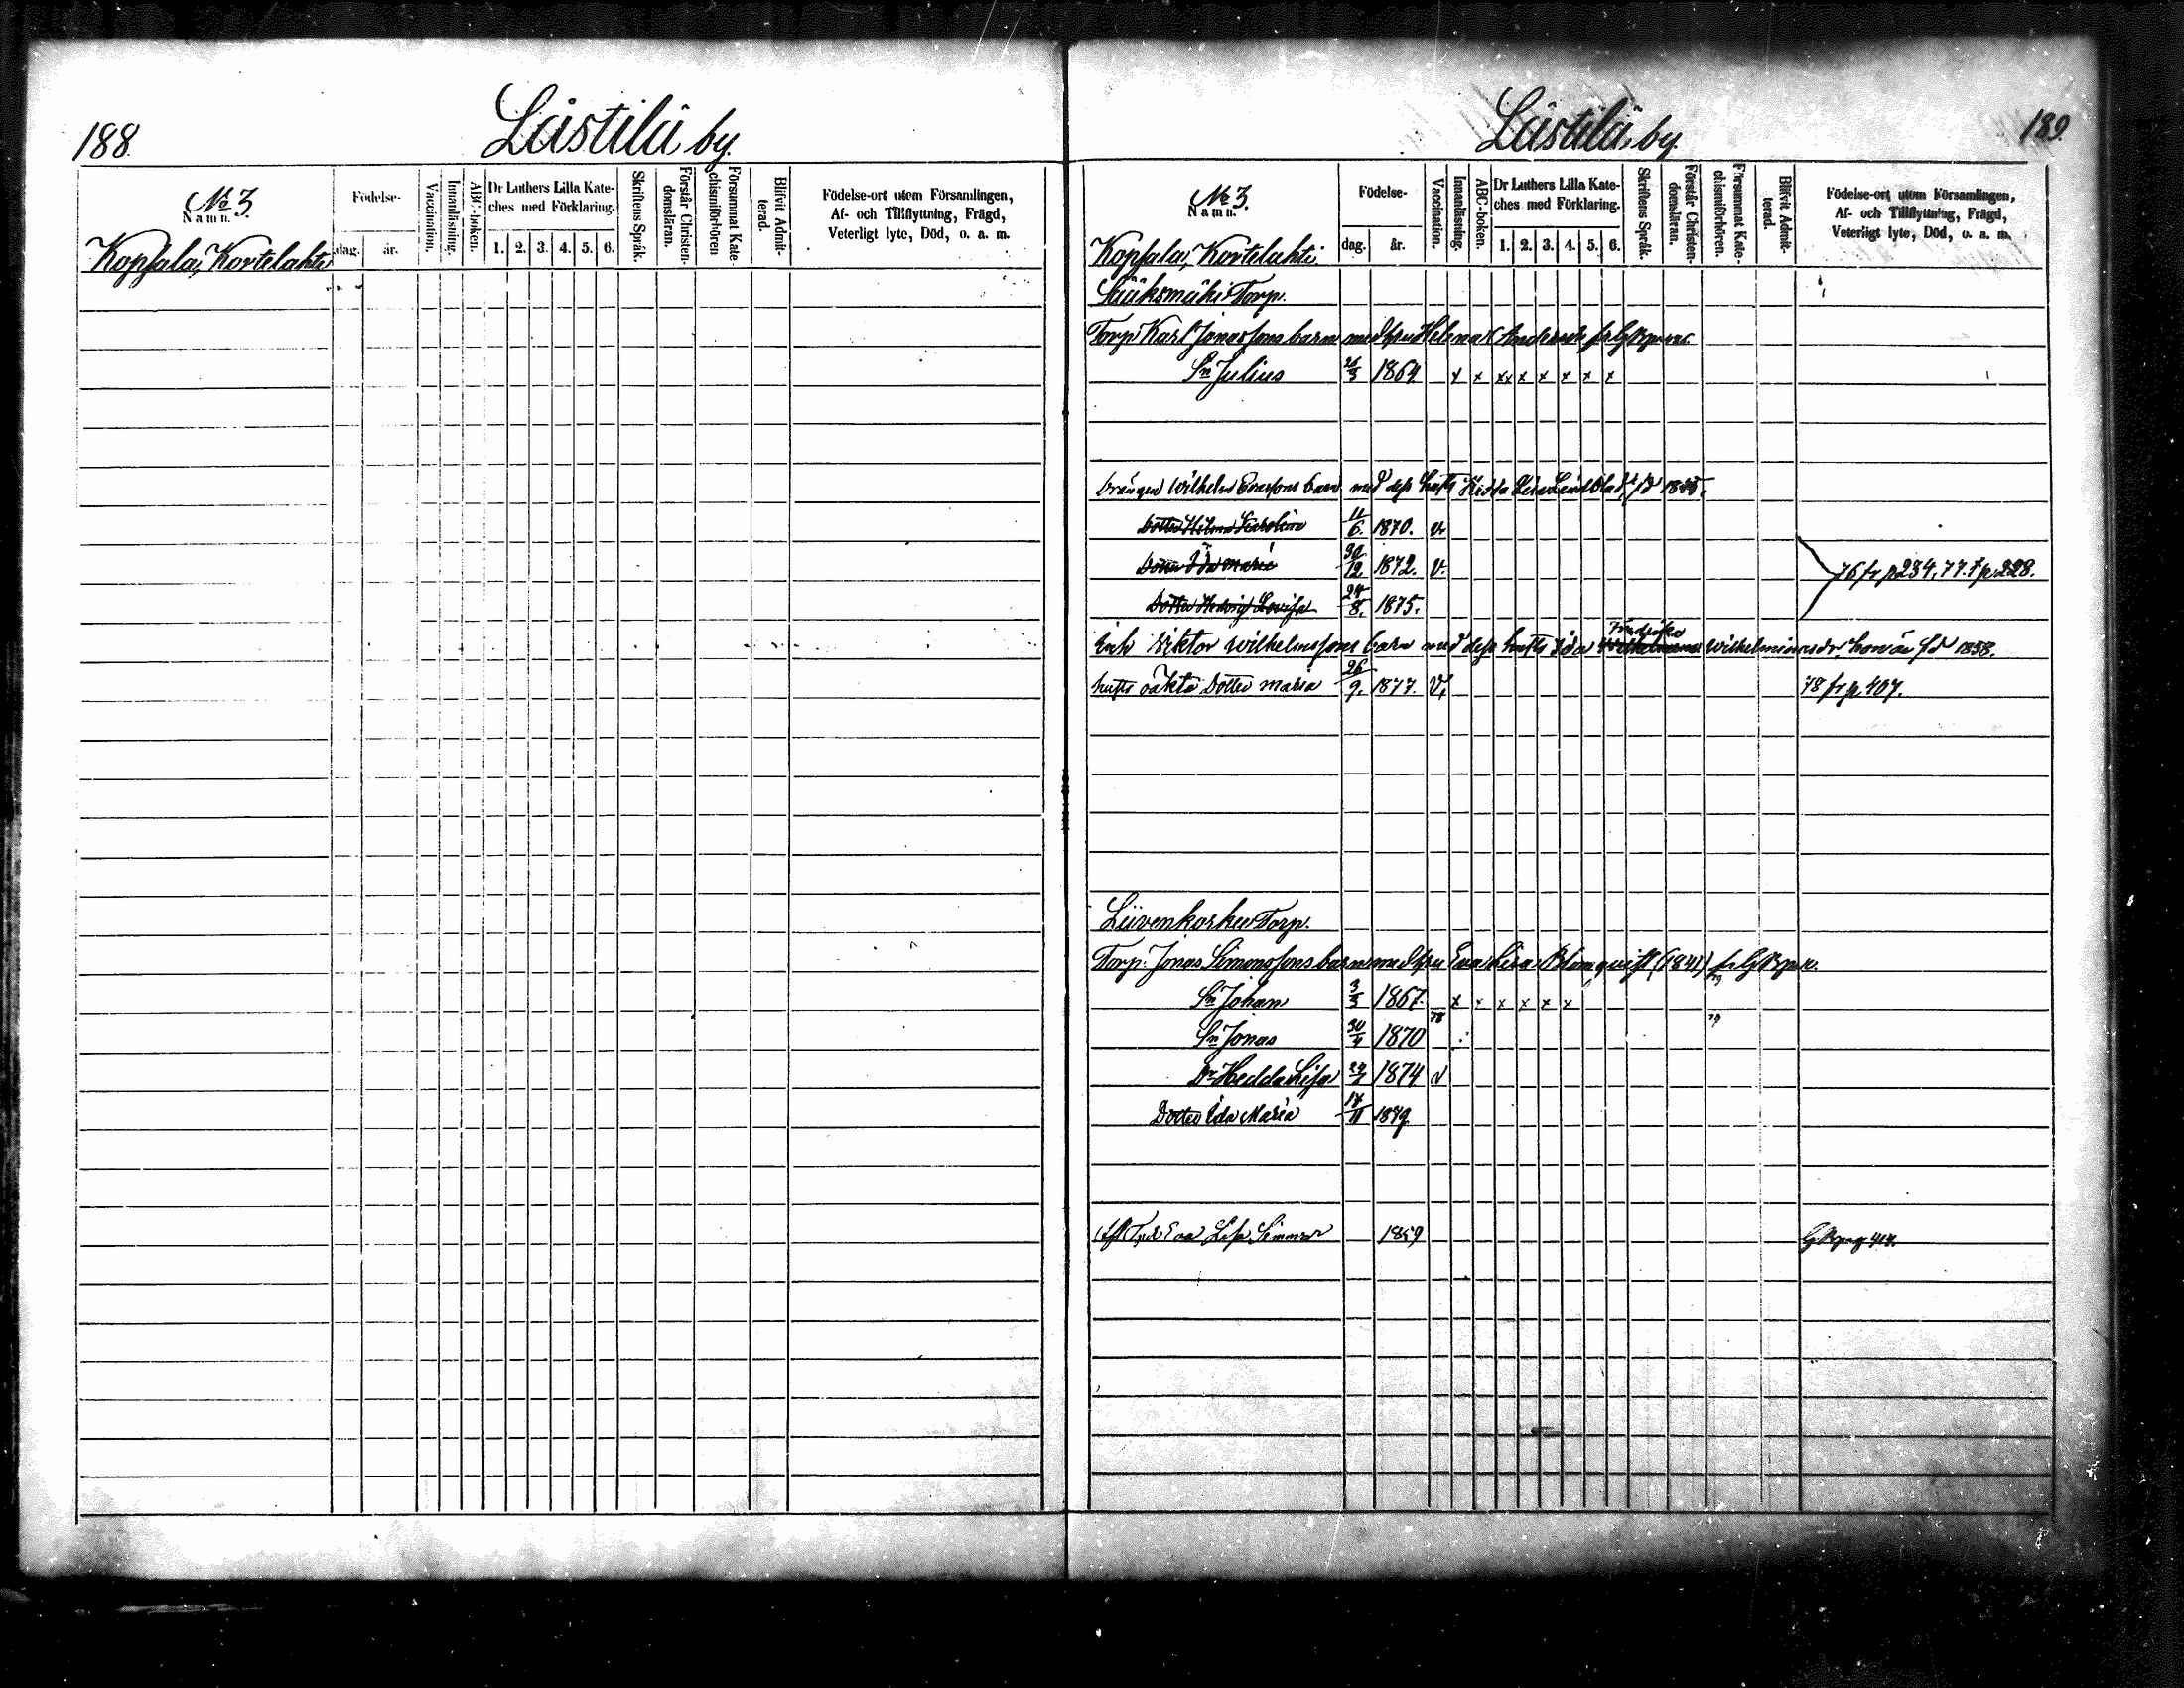 188.
Lästilä by.
№ 3.
Namn.
Kopsala, Kortelahti
Födelse-
dag.
år.
Vaccination.
Innanläsning.
ABC-boken.
Dr Luthers Lilla Kate-
ches med Förklaring.
1. 2. 3. 4. 5. 6.
Skriftens Språk.
Förstår Christen-
domsläran.
Försummat Kate-
chismiförhören
Blifvit Admit-
terad.
Födelse-ort utom Församlingen,
Af- och Tillflyttning, Frägd,
Veterligt lyte, Död, o. a. m.
Lästilä by.
189.
№ 3.
Namn.
Kopsala, Kortelahti
Födelse-
dag.
år.
Vaccination.
Innanläsning.
ABC-boken.
Dr Luthers Lilla Kate-
ches med Förklaring.
1. 2. 3. 4. 5. 6.
Skriftens Språk.
Förstår Christen-
domsläran.
Försummat Kate-
chismiförhören.
Blifvit Admit-
terad.
Födelse-ort utom Församlingen,
Af- och Tillflyttning, Frägd,
Veterligt lyte, Död, o. a. m.
Sääksmäki Torp.
Torp. Karl Jonassons barn med hu Helena
Sn Julius 1864 x x xx x x x x x
Drängen Wilhelm barn med dess hust Hedda Lisa Lindblad fd
Dotter Hilma Karolina 11/6. 1870. v.
Dotter Ida Maria 30/12. 1872. v. 76 fr p 234, 77. t p 228.
Dotter Hedvig Lovisa 24/8. 1875.
Inh Viktor Wilhelmssons barn med dess hust Ida Fredrika Wilhelmina fd 1858.
hust oäkta Dotter Maria 26/9. 1877. v. 78 fr p 407.
Liivenkosken Torp.
Torp. Jonas Simonssons barn med hu Eva Lisa Blomquist (1841)
Sn Johan 3/3 1867. x x x x x x
Sn Jonas 30/4 1870 78 79
Dr Hedda Lisa 1874 v
Dotter Ida Maria 17/11 1879
Eva Lisa 1859